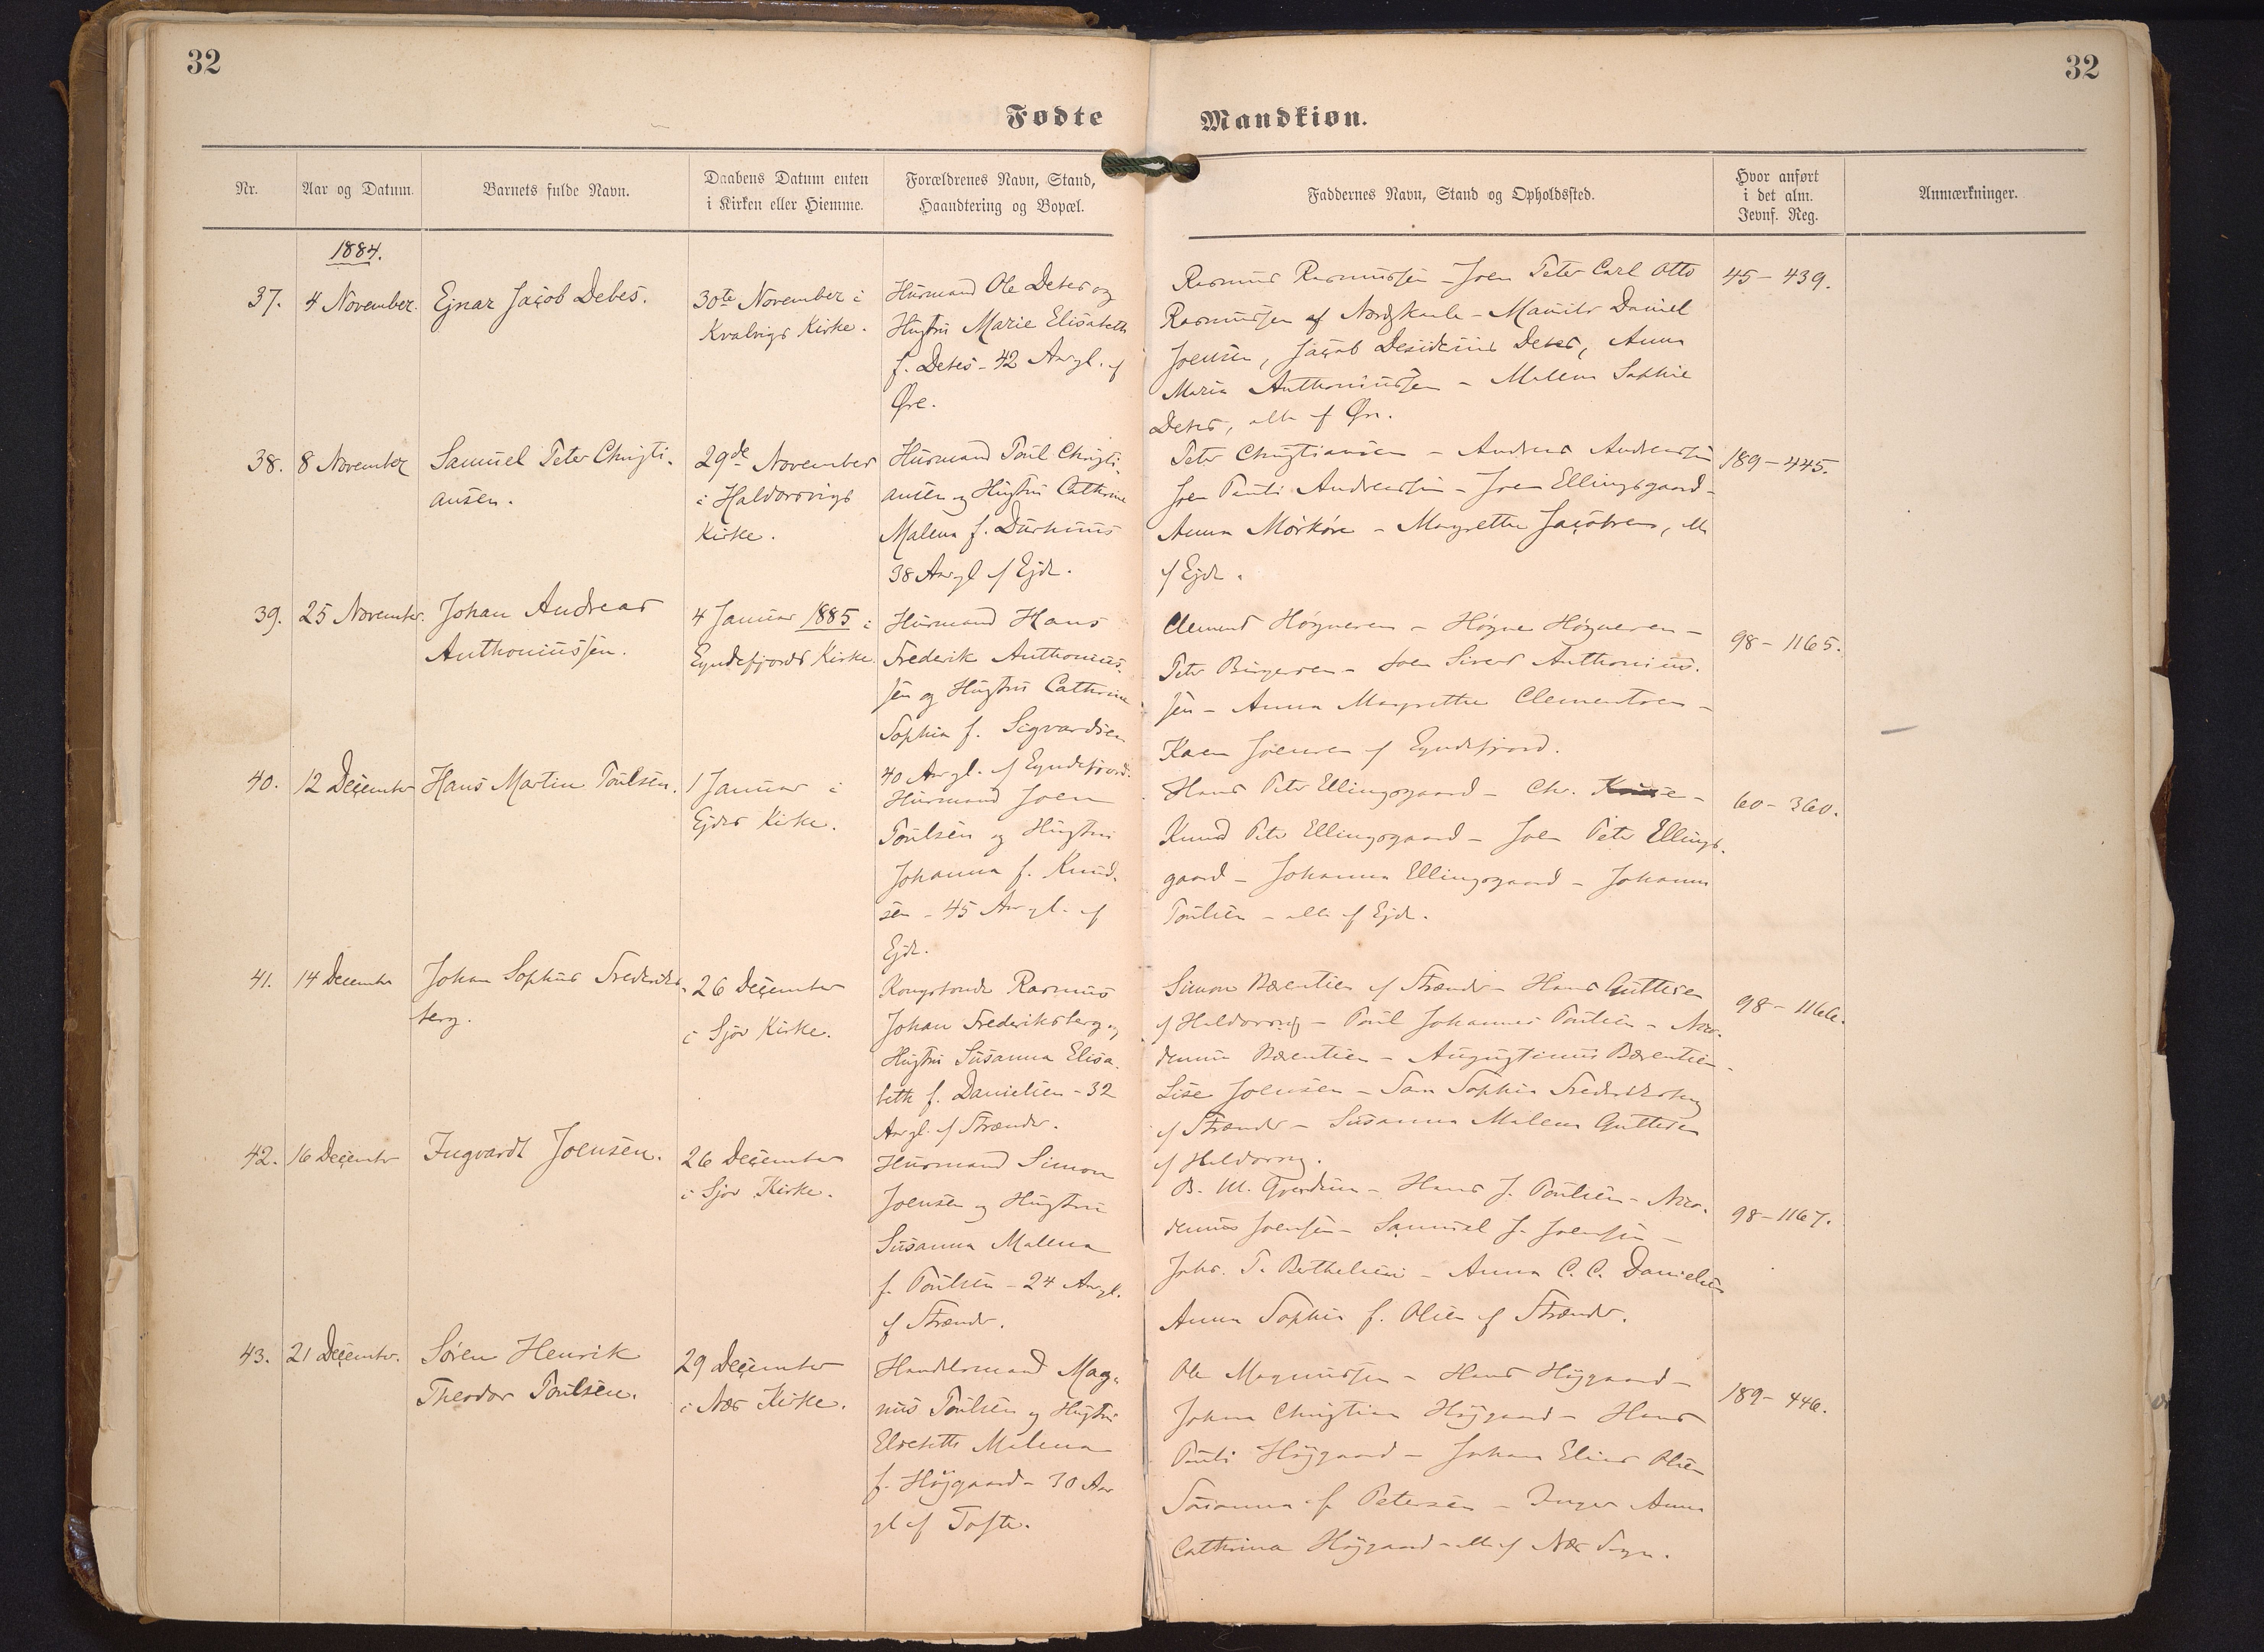 32
32
Fødte
Mandkiøn.
Nr.
Aar og Datum.
Barnets fulde Navn.
Daabens Datum enten
i Kirken eller Hiemme.
Forældrenes Navn, Stand,
Haandtering og Bopæl.
Faddernes Navn, Stand og Opholdssted.
Hvor anført
i det alm.
Jevnf. Reg.
Anmærkninger.
1884.
37.
4 November.
Ejnar Jacob Debes.
30te November i
Kvalvigs Kirke.
Huusmand Ole Debes og
Hustru Marie Elisabeth
f. Debes - 42 Aar gl. af
Øre.
Rasmus Rasmussen - Joen Peter Carl Otto
Rasmussen af Nordskaale - Mauits Daniel
Joensen, Jacob Desiderius Debes, Anna
Maria Anthoniussen - Malena Sophie
Debes, alle af Øre.
45 - 439.
38.
8 November
Samuel Peter Christi-
ansen.
29de November
i Haldorsvigs
Kirke.
Huusmand Poul Christi-
ansen og Hustru Cathrine
Malena f. Durhuus
38 Aar gl af Ejde.
Peter Christiansen - Andreas Andreassen
Joen Pauli Andreassen - Joen Ellingsgaard -
Anna Mørkøre - Magrethe Jacobsen, alle
af Ejde.
189 - 445.
39.
25 November.
Johan Andreas
Anthoniussen.
4 Januar 1885 i
Eyndefjords Kirke.
Huusmand Hans
Frederik Anthonius-
sen og Hustru Cathrine
Sophia f. Sigvardsen
40 Aar gl. af Eyndefjord.
Clemens Høgnesen - Høgne Høgnesen -
Peter Birgersen - Joen Sivert Anthonius-
sen - Anna Magrethe Clementsen -
Karen Joensen af Eyndefjord.
98 - 1165.
40.
12 December
Hans Martin Poulsen.
1 Januar i
Ejdes Kirke.
Huusmand Joen
Poulsen og Hustru
Johanna f. Knud-
sen - 45 Aar gl. af
Ejde.
Hans Peter Ellingsgaard - Chr. Kruse -
Knud Peter Ellingsgaard - Joen Peter Ellings-
gaard - Johanna Ellingsgaard - Johanna
Poulsen - alle af Ejde.
60 - 360.
41.
14 December
Johan Sophus Frederiks-
berg.
26 December
i Sjov Kirke.
Kongsbonde Rasmus
Johan Frederiksberg og
Hustru Susanna Elisa-
beth f. Danielsen - 32
Aar gl. af Strænder.
Simon Bærentsen af Strænder - Hans Guttesen
af Haldorsvig - Poul Johannes Poulsen - Nico-
demus Bærentsen - Augustinus Bærentsen -
Lise Joensen - Sophia Frederiksberg
af Strænder - Susanna Malena Guttesen
af Haldorsvig.
98 - 1166.
42.
16 December
Ingvardt Joensen.
26 December
i Sjov Kirke.
Huusmand Simon
Joensen og Hustru
Susanna Malena
f. Poulsen - 24 Aar gl.
af Strænder.
B. M. - Hans J. Poulsen - Nico-
demus Joensen - Samuel J. Joensen -
Johs. P. Berthelsen - Anna C. C. Danielsen
Anna Sophia f. Olsen af Strænder.
98 - 1167.
43.
21 December.
Søren Henrik
Theodor Poulsen.
29 December
i Næs Kirke.
Handelsmand Mag-
nus Poulsen og Hustru
Elsebeth Malena
f. Højgaard - 30 Aar
gl af Tofte.
Ole Magnussen - Hans Højgaard -
Johan Christian Højgaard - Hans
Pauli Højgaard - Johan Elias Olsen
Susanna f. Petersen - Inger Anna
Cathrina Højgaard - alle af Næs Sogn.
189 - 446.